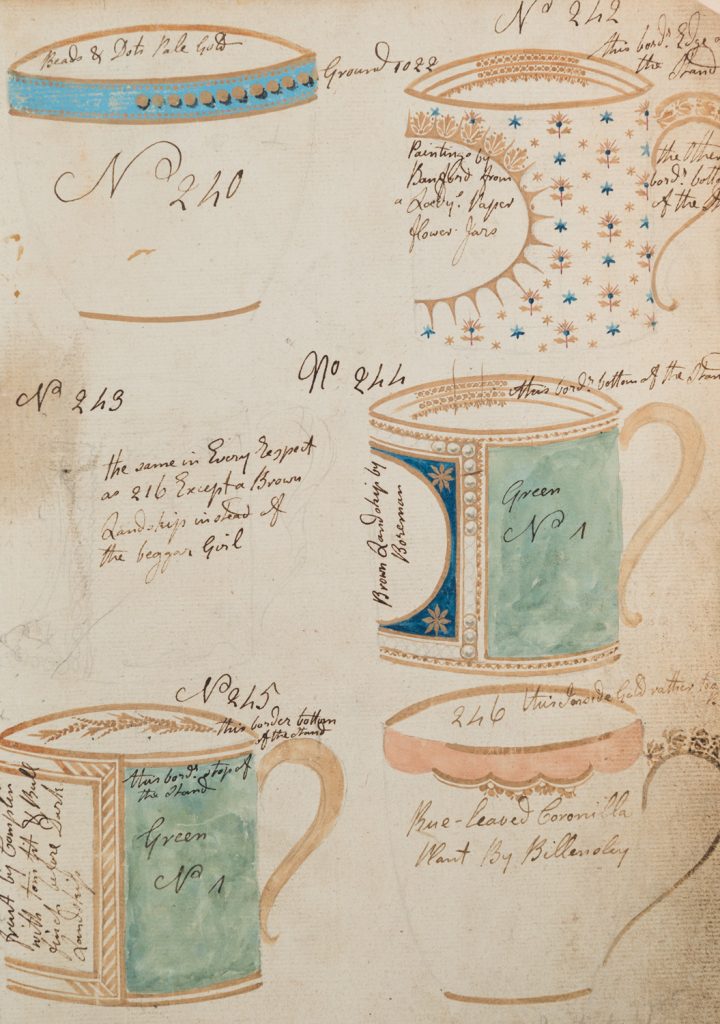 Beads & Dots Pale Gold
Ground 1022
No 240
No 242
this bordr. Edge
the Stand
Paintings by
Banford from
Flower Jars
the Other
bordr. bottom
of the
No 243
the same in Every Respect
as 216 Except a Brown
Landskip instead of
the beggar Girl
No 244
this bordr. bottom of the Stand
Brown Landskip by
Boreman
Green
No 1
No 245
this border bottom
of the Stand
this bordr. atop of
the Stand
Green
No 1
Fruit by Complin
with Tom tit & Bull
finch before Dark
Landskip
246
this Inside Gold rather too
Rue-leaved Coronilla
Plant By Billensley